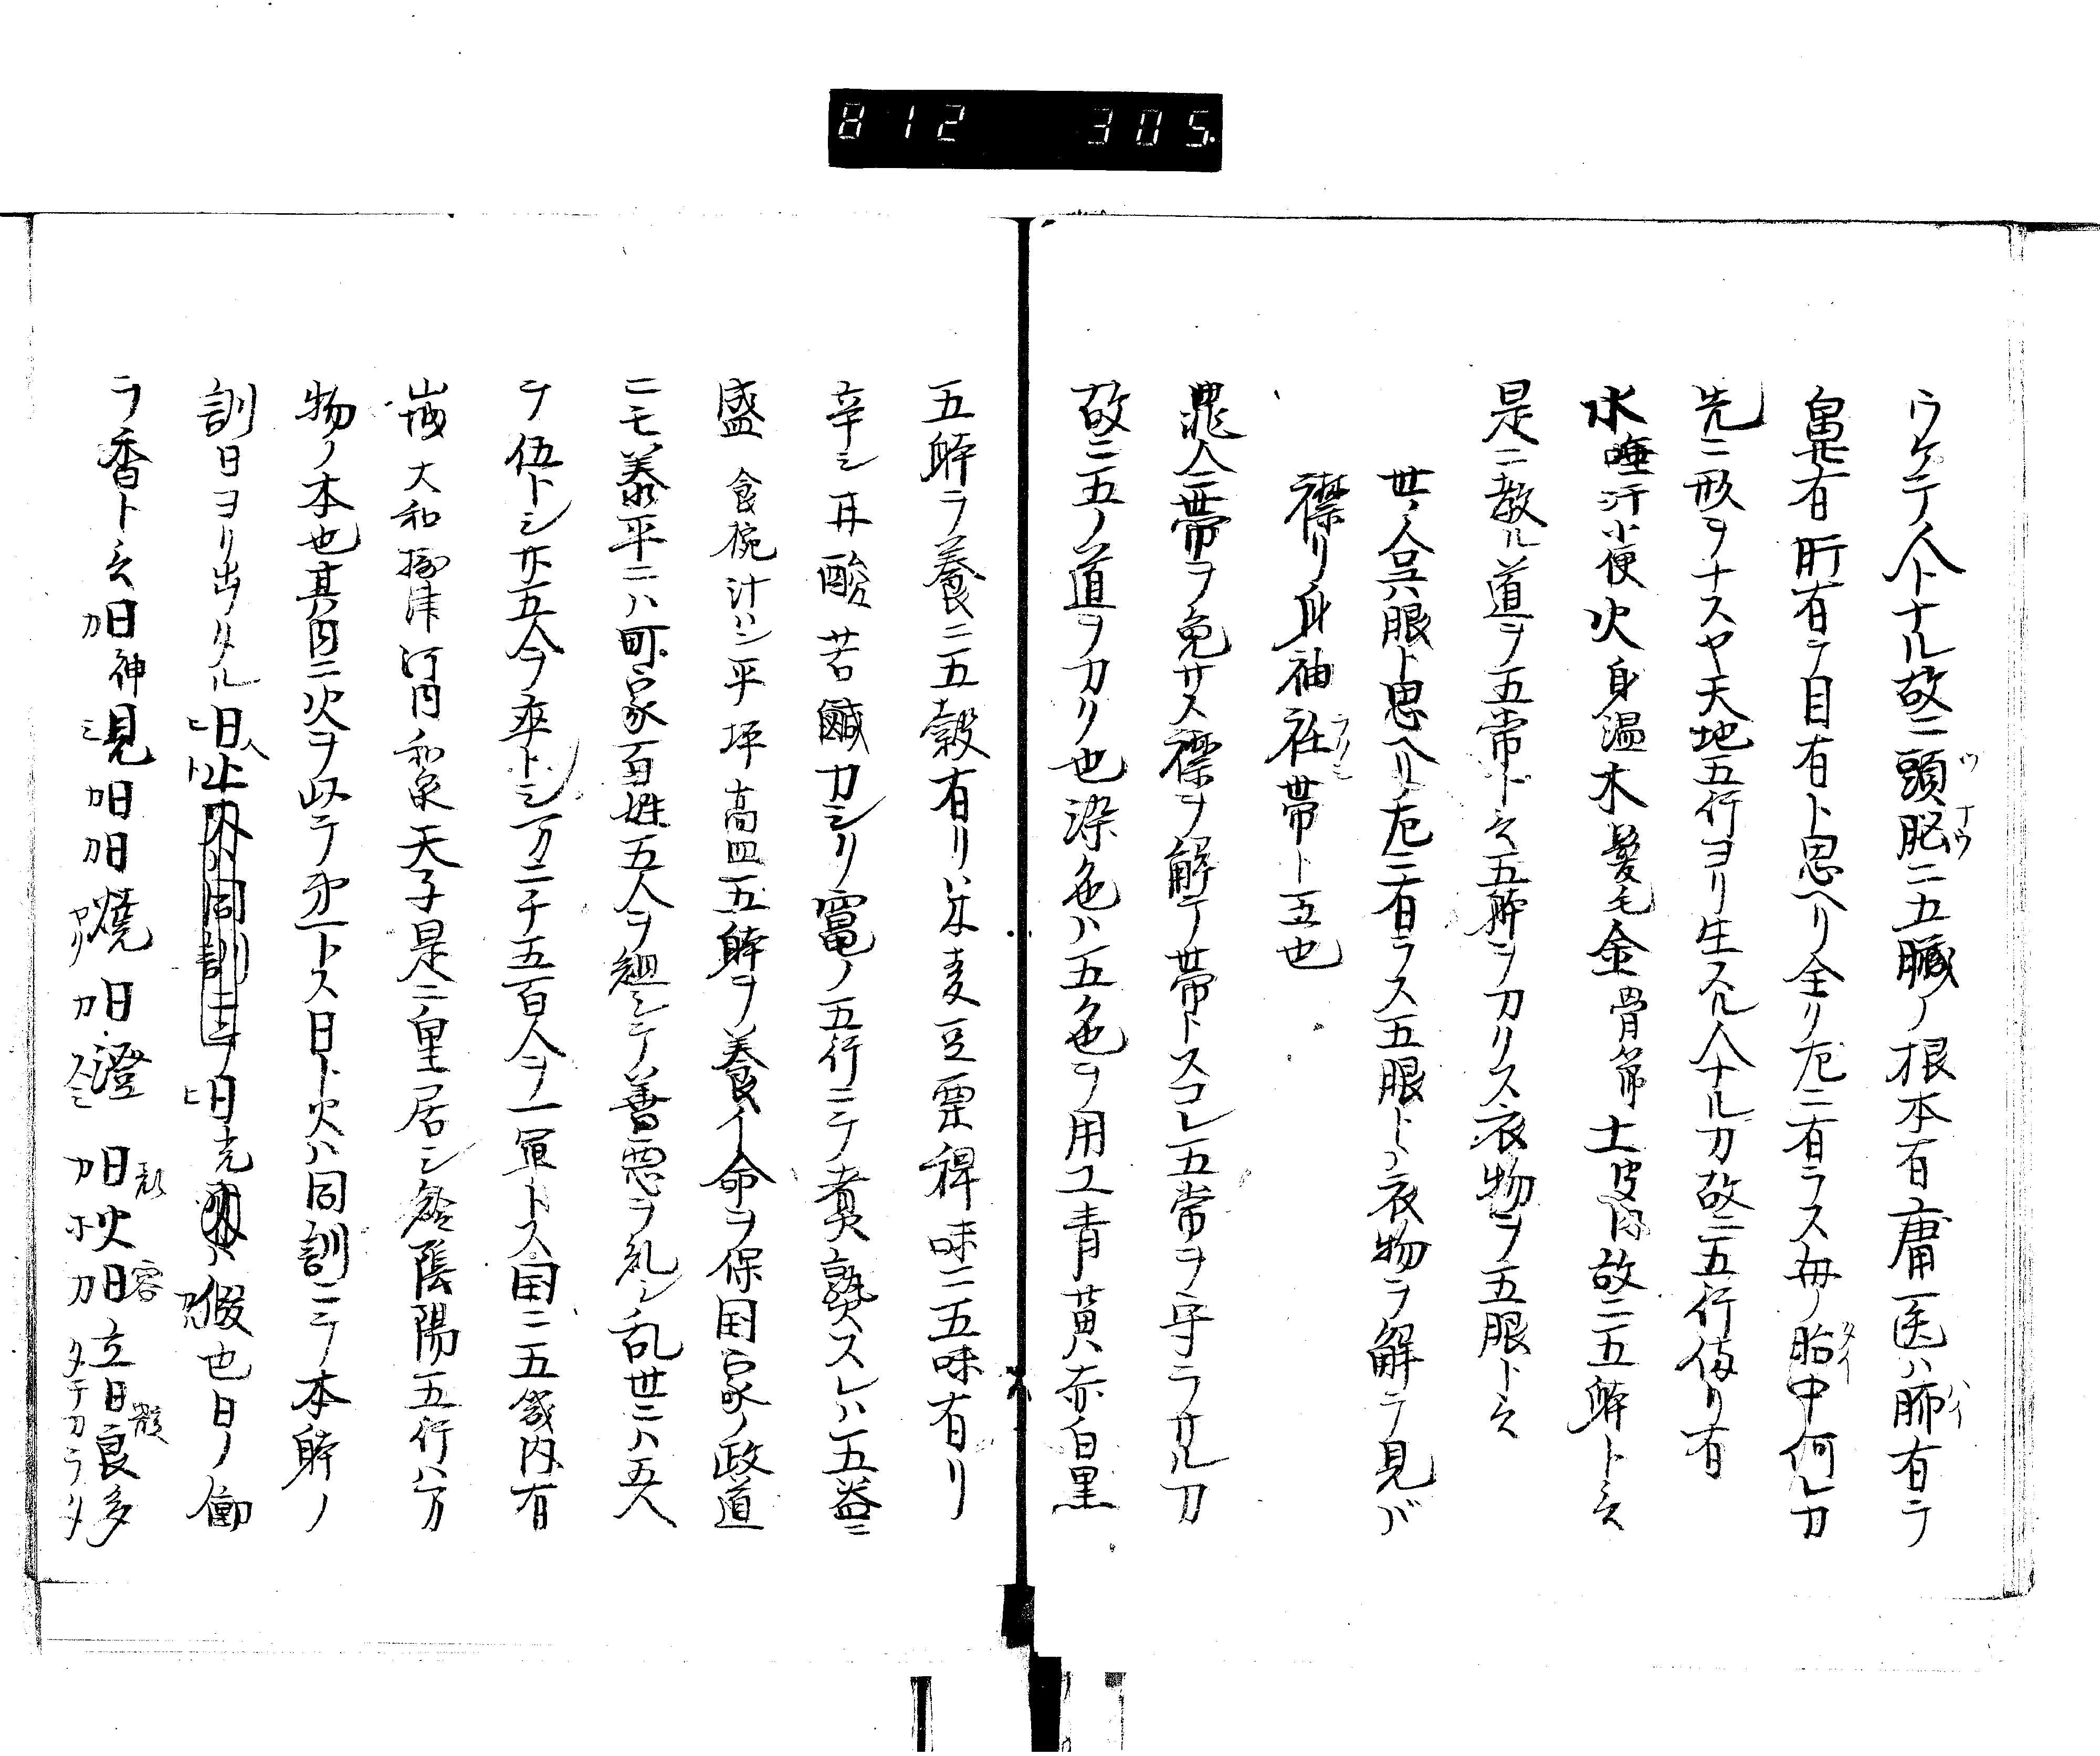 812 305.
ウケテ人トナル故ニ頭脳ニ五臓ノ根本有庸医ハ肺有テ
鼻有肝有テ目有ト思ヘリ全ク左ニ有ラス毋ノ胎中何レカ
先ニ形ヲナスヤ天地五行ヨリ生スル人ナルカ故ニ五行備リ有
水唾汗小便火身温木髪毛金骨節土皮肉故ニ五躰ト云
是ニ教ル道ヲ五常ト云五躰ヲカリス衣物ヲ五服ト云
世ノ人呉服ト思ヘリ左ニ有ラス五服トハ衣物ヲ解テ見バ
襟リ身袖衽帯ト五也
罪人ニ帯ヲ免サス襟ヲ解テ帯トスコレ五常ヲ守ラサルカ
故ニ五ノ道ヲカリ也染色ハ五色ヲ用ユ青黄赤白黒
五躰ヲ養ニ五穀有リ米麦豆粟稗味ニ五味有リ
辛シ甘酸苦鹹カシリ竃ノ五行ニテ煮熟スレハ五益ニ
盛食椀汁ハン平坪高皿五躰ヲ養イ命ヲ保国家ノ政道
ニモ泰平ニハ町家百姓五人ヲ組シテ善悪ヲ糺シ乱世ニハ五人
ヲ伍トシ廿五人ヲ卒トシ一万二千五百人ヲ一軍トス国ニ五畿内有
山城大和摂津河内和泉天子是ニ皇居シ給陰陽五行ハ万
物ノ本也其内ニ火ヲ以テ第一トス日ト火ハ同訓ニシテ本躰ノ
訓日ヨリ出タル日人止外ハ同訓ニシテ日光ハ假也日ノ働
ヲ香ト云日神見日日焼日澄日秋日立日良多